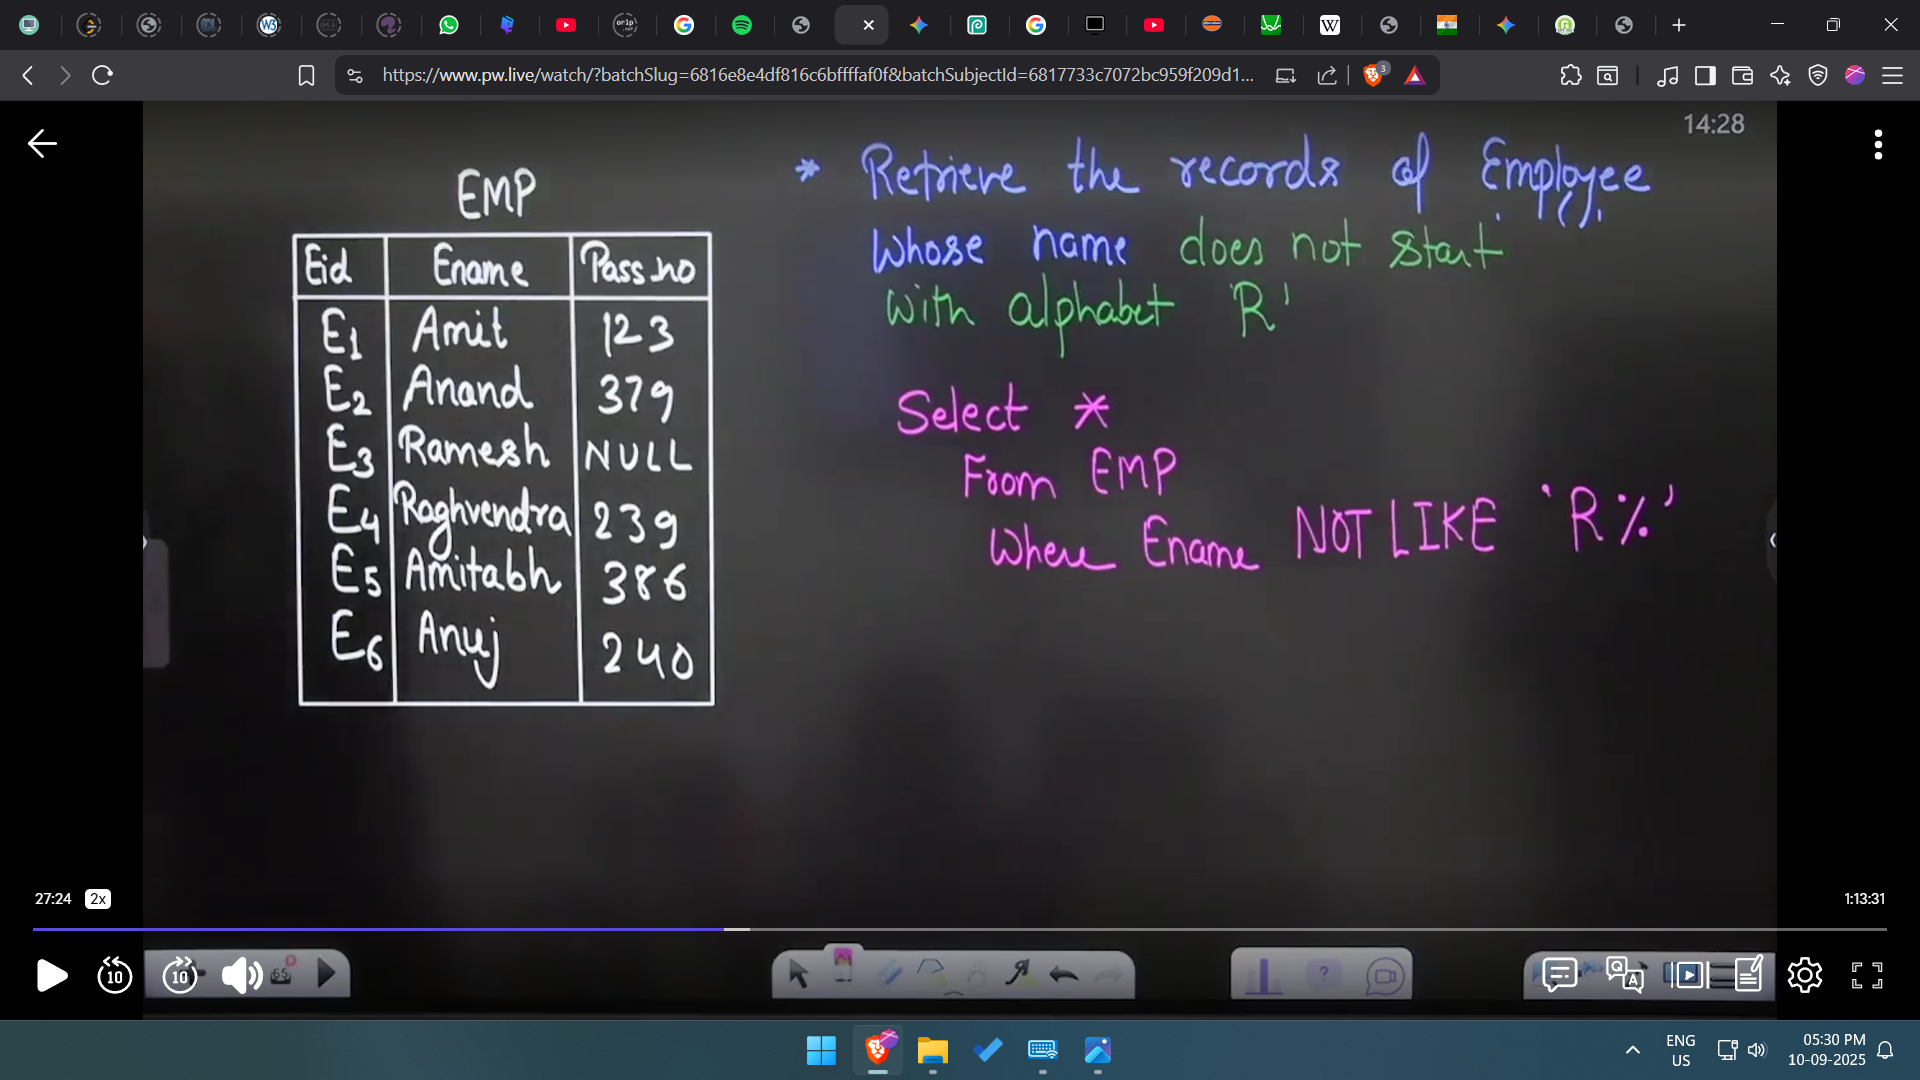 https://www.pw.live/watch/?batchSlug=6816e8e4df816c6bffffaf0f&batchSubjectId=6817733c7072bc959f209d1...
3
14:28
EMP
Eid Ename Pass.no
E1 Amit 123
E2 Anand 379
E3 Ramesh NULL
E4 Raghvendra 239
E5 Amitabh 386
E6 Anuj 240
* Retrieve the records of Employee
whose name does not start
with alphabet 'R'
Select *
From EMP
Where Ename NOT LIKE 'R%'
27:24 2x
1:13:31
10
10
65
ENG
US
05:30 PM
10-09-2025